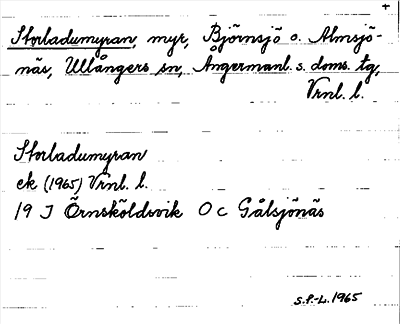 +
Storladumyran, myr, Björnsjö o. Almsjö-
näs, Ullångers sn, Ångermanl. s. doms. tg,
Vrnl. l.
Storladumyran
ek (1965) Vrnl. l.
19 J Örnsköldsvik 0 c Gålsjönäs
S.P.-L. 1965